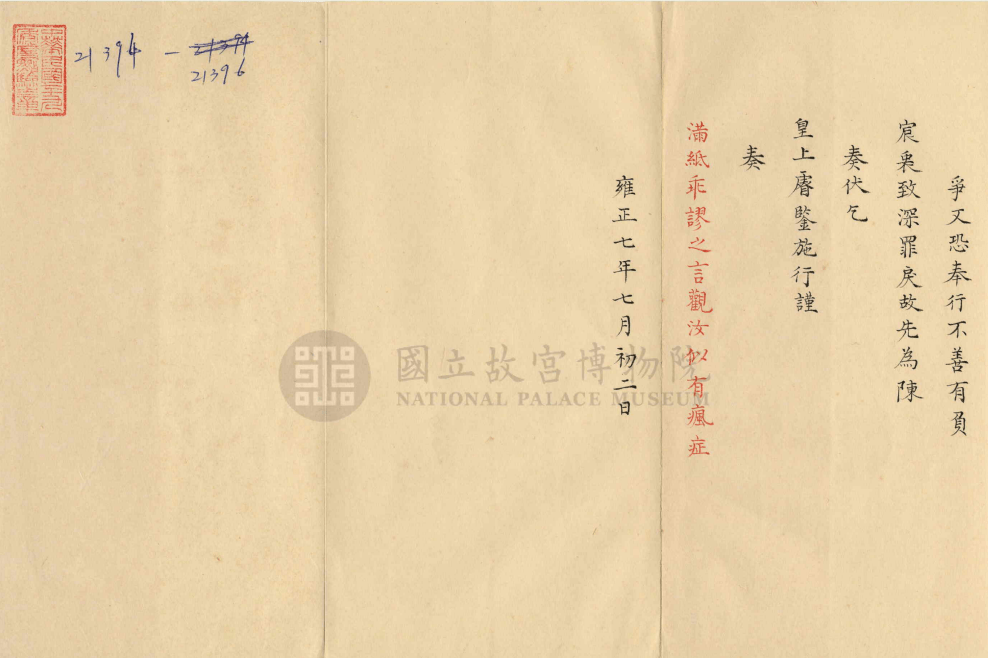 爭又恐奉行不善有負
宸衷致深罪戾故先為陳
奏伏乞
皇上睿鑒施行謹
奏
滿紙乖謬之言觀汝似有瘋症
雍正七年七月初二日
21394 - 21394
21396
國立故宮博物院
NATIONAL PALACE MUSEUM